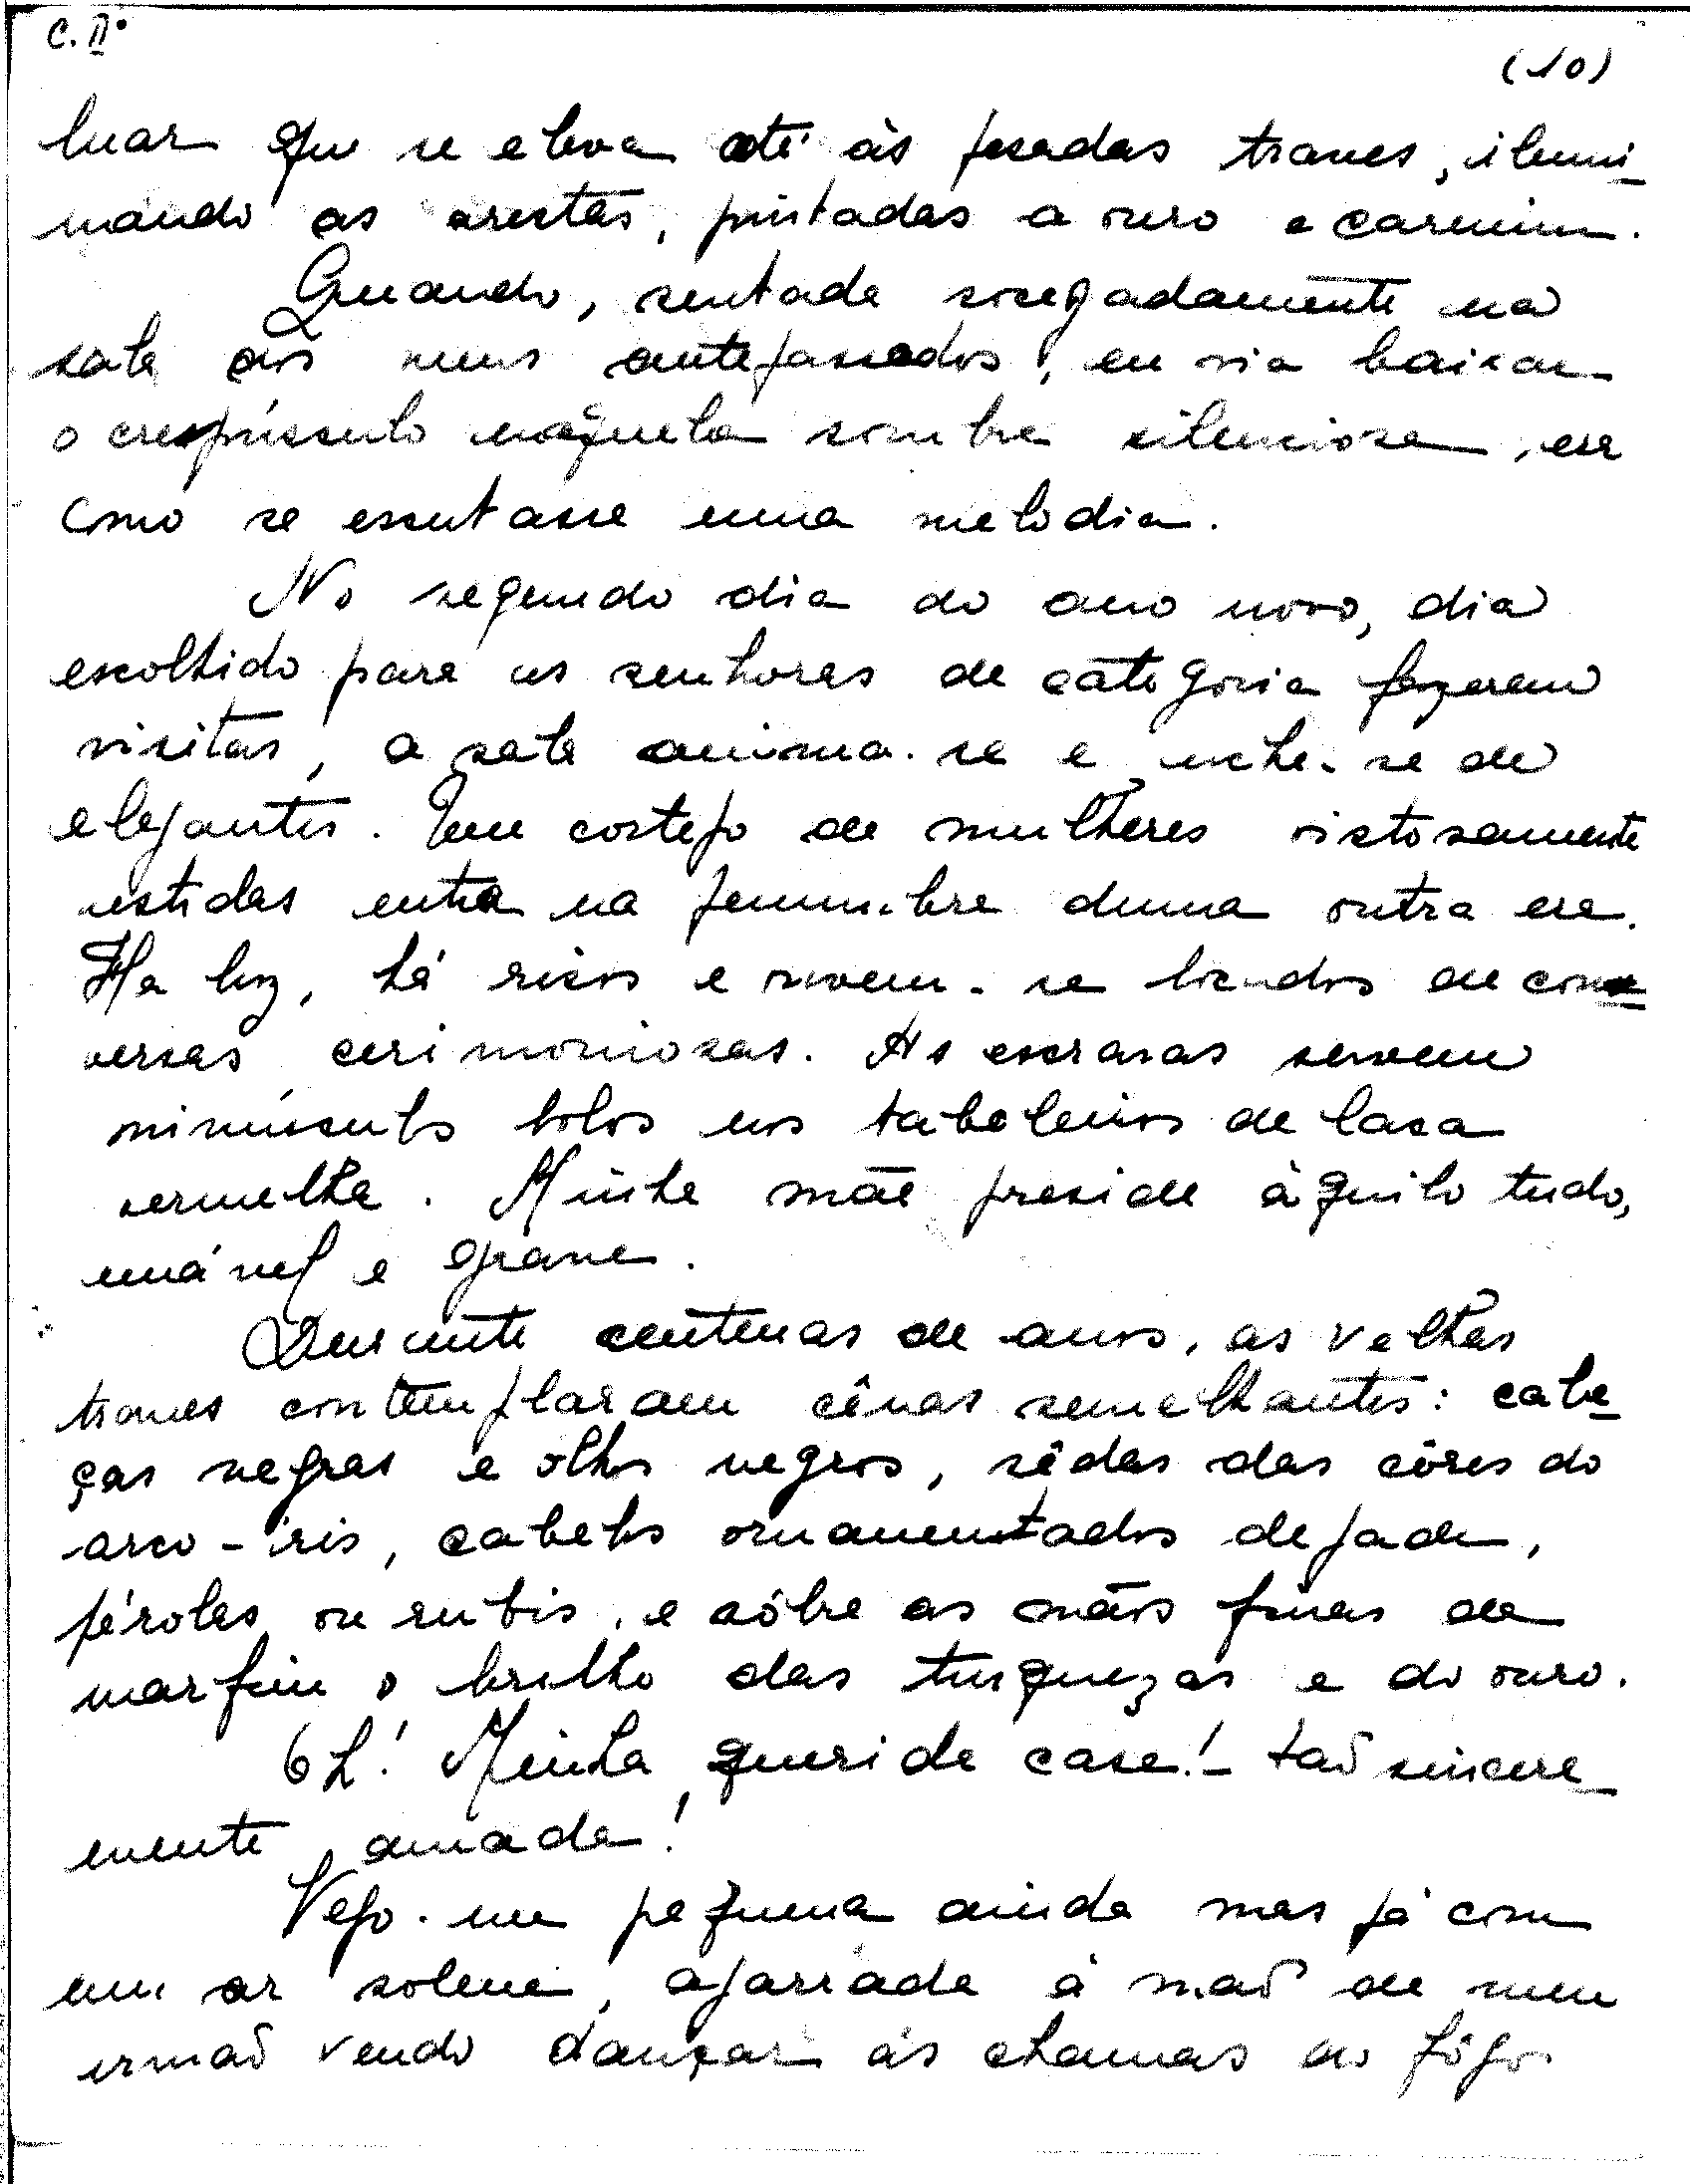 C. IIº
(10)
luar que se eleva até às pesadas traves, ilumi-
nando as arestas, pintadas a ouro e carmim.
Quando, sentada sosegadamente na
sala dos meus antepassados, eu via baixar
o crespússulo naquela sombra silenciosa, era
como se escutasse uma melodia.
No segundo dia do ano novo, dia
escolhido para os senhores de categoria fazerem
visitas, a sala anima-se e enche-se de
elegantes. Um cortejo de mulheres vistosamente
vestidas entra na penumbra duma outra era.
Ha luz, há risos e ouvem-se bocados de con-
versas cerimoniosas. As escravas servem
minússulos bolos nos taboleiros de laca
vermelha. Minha mãe preside àquilo tudo,
amável e grave.
Durante centenas de anos, as velhas
traves contemplaram cênas semelhantes: cabe-
ças negras e olhos negros, sêdas das côres do
arco-íris, cabelos ornamentados de jade,
pérolas ou rubis, e sôbre as mãos finas de
marfim o brilho das turquezas e do ouro.
Oh! Minha querida casa! - tão sincera-
mente amada!
Vejo-me pequena ainda mas já com
um ar solene, agarrada à mão de meu
irmão vendo dançar as chamas do fôgo